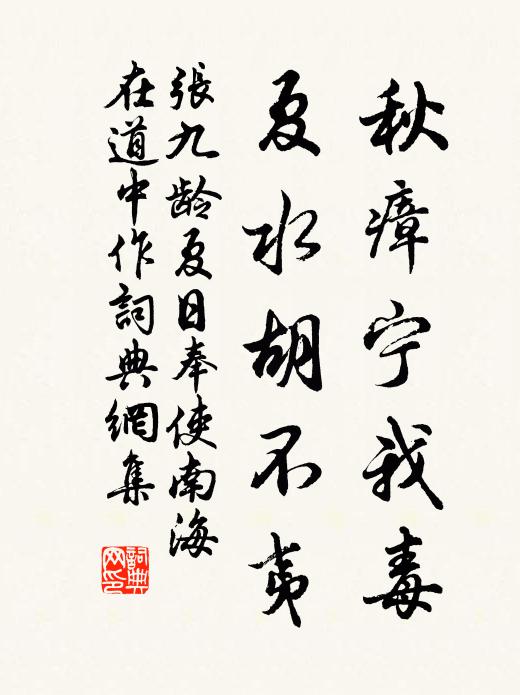 秋瘴宁我毒
夏水胡不夷
張九龄夏日奉使南海
在道中作詞典網集
詞典
网印